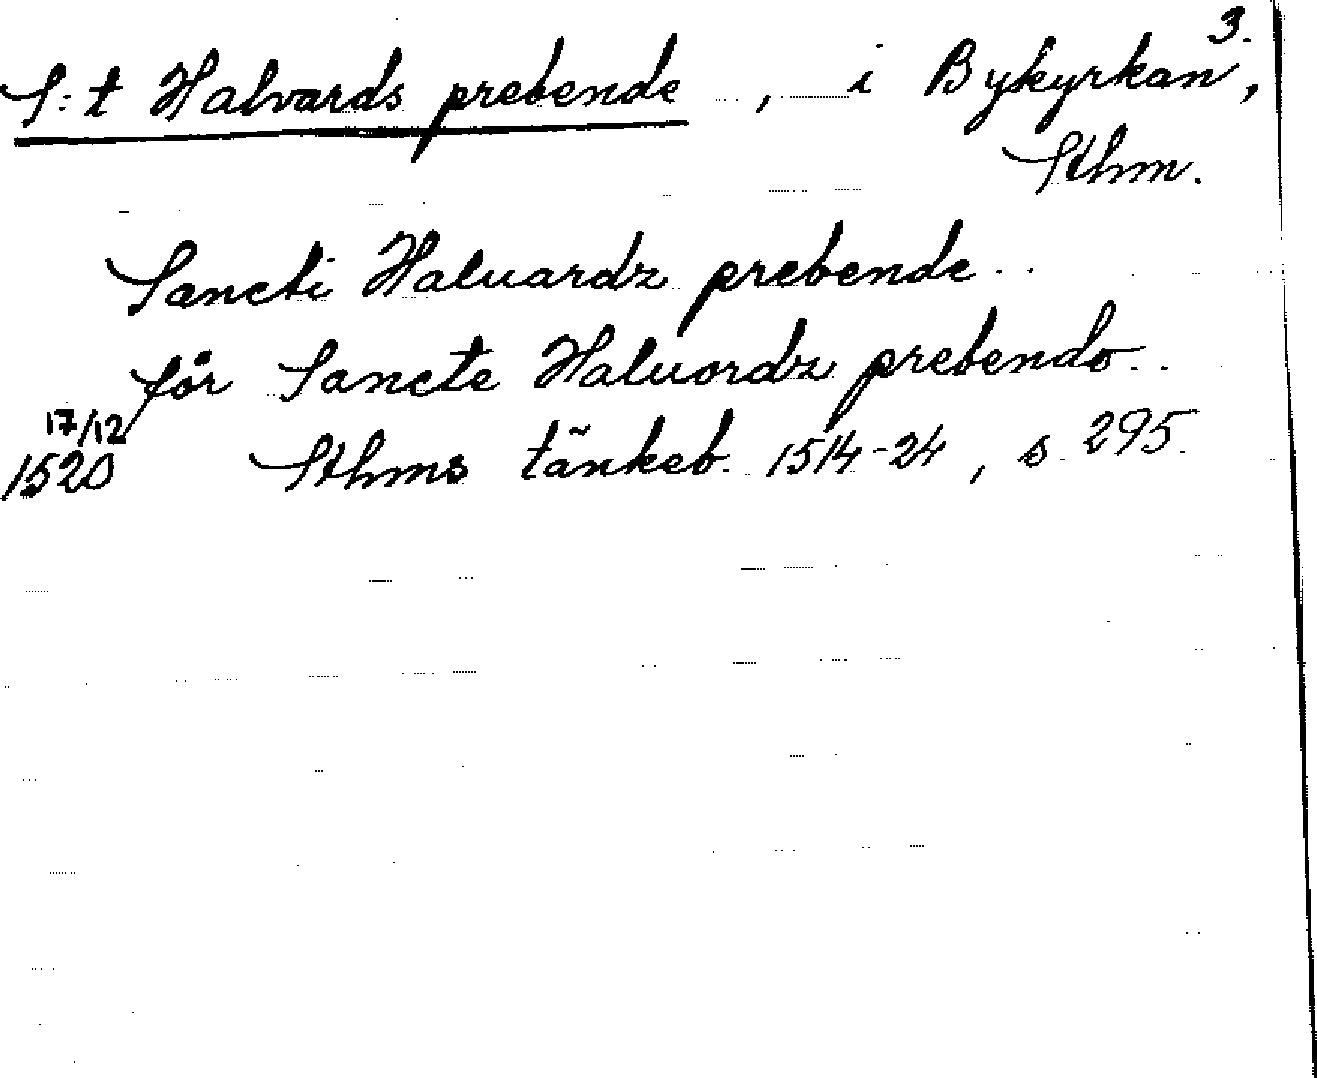 3.
S:t Halvards prebende, i Bykyrkan,
Sthm.
Sancti Haluardz prebende
för Sancte Haluordz prebendo
17/12
1520 Sthms tänkeb. 1514-24, s 295.